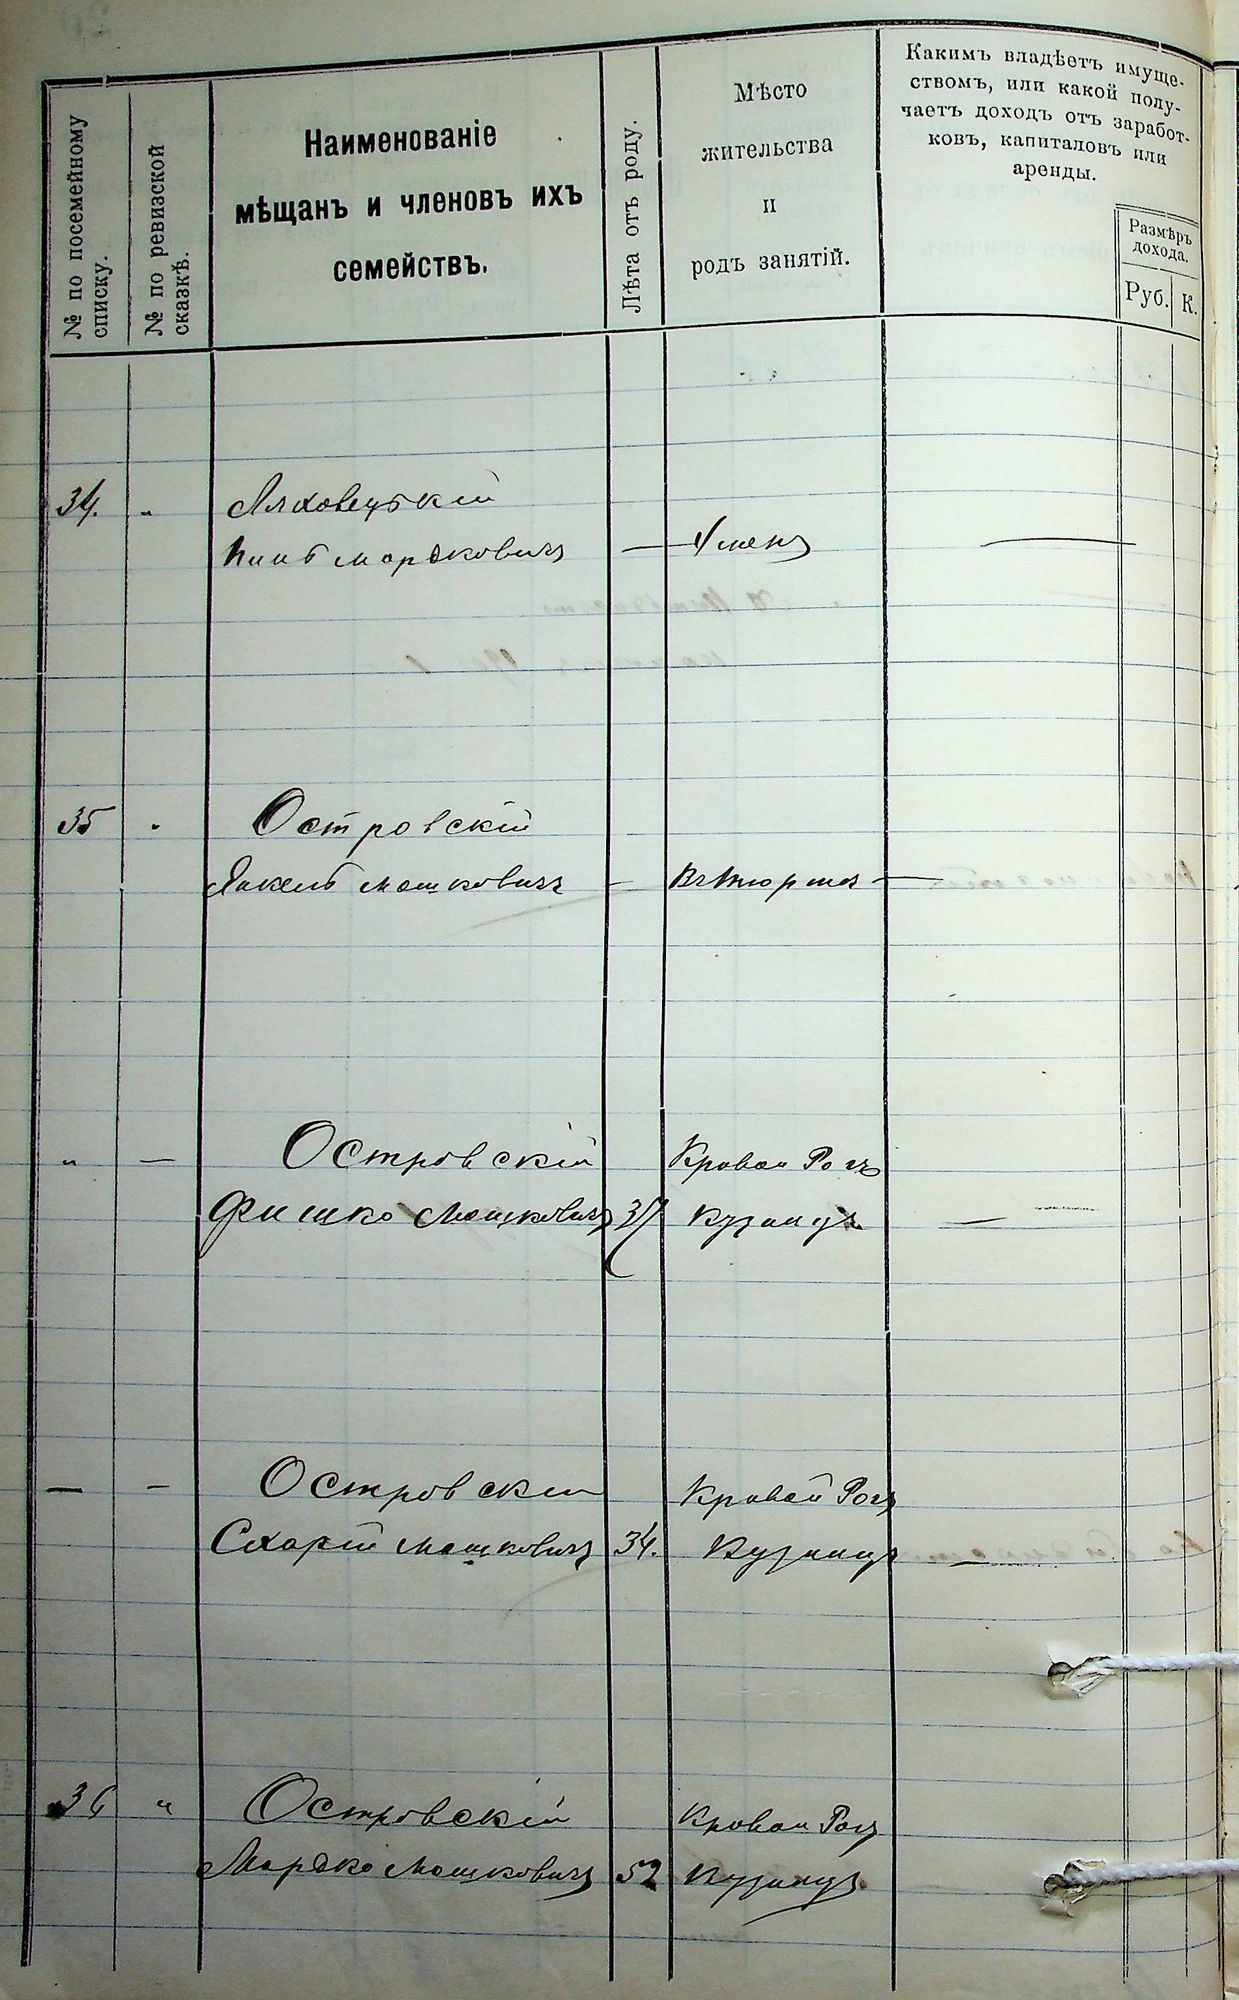 № по посемейному
списку.
№ по ревизской
сказкѣ.
Наименованіе
мѣщанъ и членовъ ихъ
семействъ.
Лѣта отъ роду.
Мѣсто
жительства
и
родъ занятій.
Какимъ владѣетъ имуще-
ствомъ, или какой полу-
чаетъ доходъ отъ заработ-
ковъ, капиталовъ или
аренды.
Размѣръ
дохода.
Руб. К.
34. "
Ляховецкій
Мордковичъ — Умеръ —
35 "
Островскій
Янкель Мошковичъ — —
" — Островскій Кривой Рогъ
Фишко Мошковичъ 37 Кузнецъ —
— — Островскій Кривой Рогъ
Мошковичъ 34. Кузнецъ —
36 " Островскій Кривой Рогъ
Мордко Мошковичъ 52 Кузнецъ